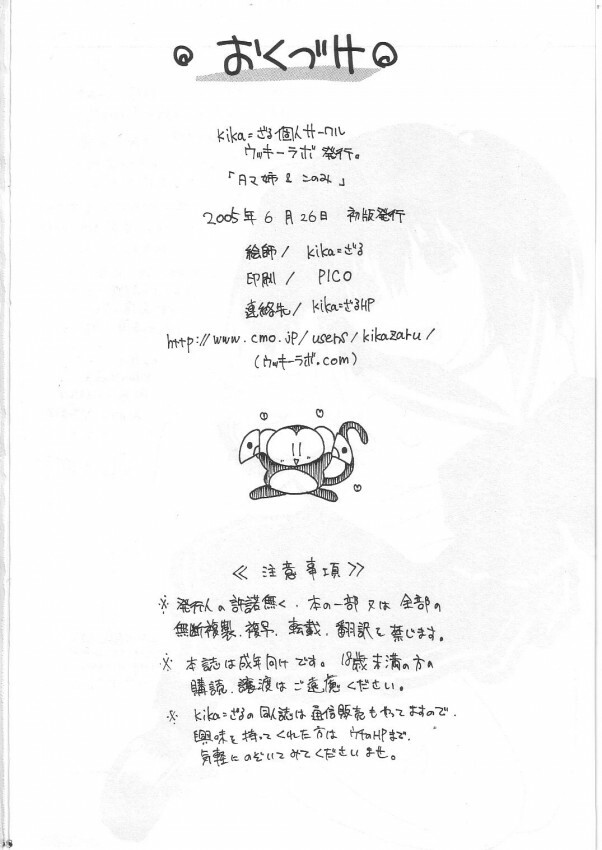 おくづけ
kika=ざる個人サークル
ウッキーラボ 発行。
「タマ姉 & このみ」
2005年 6月26日 初版発行
絵師/ kika=ざる
印刷/ PICO
連絡先/ kika=ざるHP
http://www.cmo.jp/users/kikazaru/
(ウッキーラボ.com)
≪ 注意事項 ≫
※ 発行人の許諾無く、本の一部又は全部の
無断複製、複写、転載、翻訳を禁じます。
※ 本誌は成年向けです。18歳未満の方の
購読、譲渡はご遠慮ください。
※ kika=ざるの同人誌は通信販売もやってますので、
興味を持ってくれた方はウチのHPまで、
気軽にのぞいてみてくださいませ。